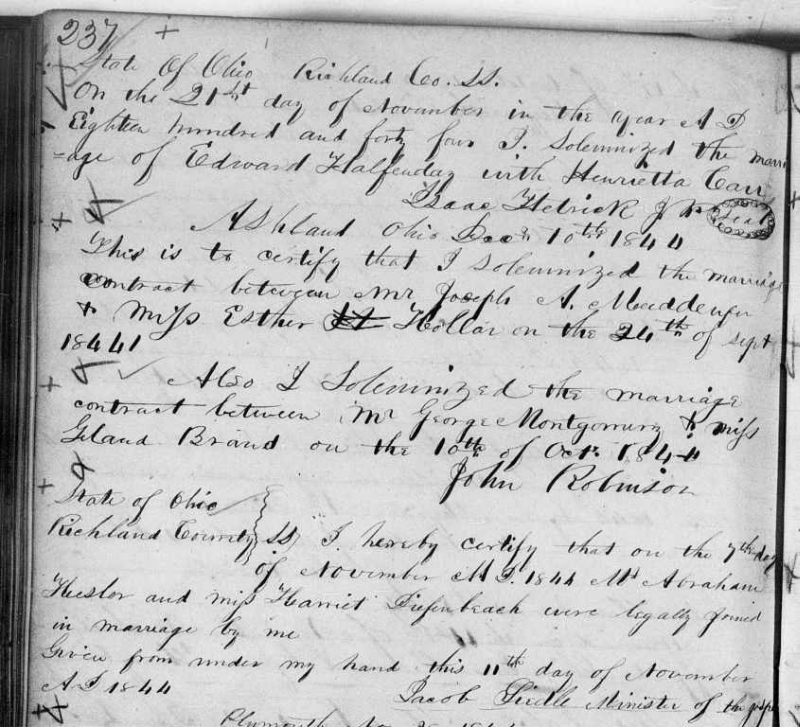 237 +
State Of Ohio Richland Co. SS.
On the 21st day of November in the year A D
Eighteen hundred and forty four I. Solemnized the marri
=age of Edward Halfenday with Henrietta Carr
Isaac Hetrick J P Seal
Ashland Ohio Decr 10th 1844
This is to certify that I Solemnized the marriage
contract between Mr Joseph A. Maddengu
+ Miss Esther Hollar on the 24th of Sept
1844
Also I Solemnized the marriage
contract between Mr George Montgomery & Miss
Brand on the 10th of Oct. 1844
John Robinson
State of Ohio
Richland County SS I hereby certify that on the 7th day
of November A D. 1844 Mr Abraham
and Miss Harriet Diefenbeach were legally joined
in marriage by me
Given from under my hand this 11th day of November
A D 1844 Jacob Minister of the
Plymouth Nov 28 1844